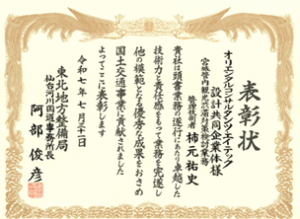 表彰状
オリエンタルコンサルタンツ・エイテック
設計共同企業体様
宮城管内観光渋滞対策検討業務
管理技術者 柿元祐史
貴社は頭書業務の遂行にあたり卓越した
技術力と責任感をもって業務を完遂し
他の模範となる優秀な成果をおさめ
国土交通事業に貢献されました
よってここに表彰します
令和七年七月三十一日
東北地方整備局
仙台河川国道事務所長
阿部俊彦